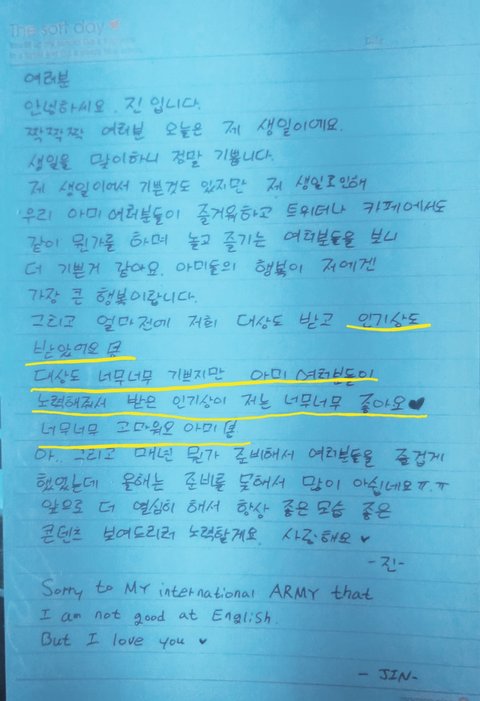 The soft day
여러분
안녕하시요. 진입니다.
짝짝짝 여러분 오늘은 제 생일이에요.
생일을 맞이하니 정말 기쁩니다.
제 생일이어서 기쁜것도 있지만 제 생일로인해
우리 아미여러분들이 즐거워하고 트위터나 카페에서도
같이 뭔가를 하며 놀고 즐기는 여러분들을 보니
더 기쁜거 같아요. 아미들의 행복이 저에겐
가장 큰 행복이랍니다.
그리고 얼마전에 저희 대상도 받고 인기상도
받았어요
대상도 너무너무 기쁘지만 아미 여러분들이
노력해줘서 받은 인기상이 저는 너무너무 좋아요 ♥
너무너무 고마워요 아미
아.. 그리고 매년 뭔가 준비해서 여러분들을 즐겁게
했었는데 올해는 준비를 못해서 많이 아쉽네요ㅠ.ㅠ
앞으로 더 열심히 해서 항상 좋은모습 좋은
콘텐츠 보여드리려 노력할게요. 사랑해요 ♥
-진-
Sorry to My international ARMY that
I am not good at English.
But I love you ♥
- JIN-